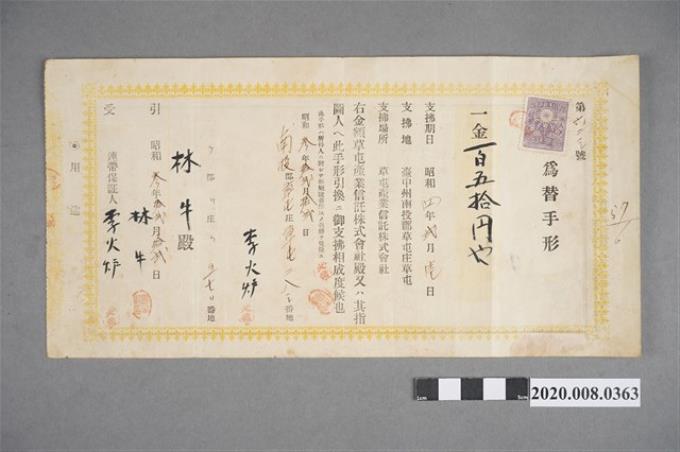 第 號
為替手形
一金百五拾円也
支拂期日 昭和四年貳月 日
支拂地 臺中州南投郡草屯庄草屯
支拂場所 草屯產業信託株式會社
右金額草屯產業信託株式會社殿又ハ其指
圖人ヘ此手形引換ニ御支拂相成度候也
昭和參年拾貳月拾貳日
南投郡草屯庄草屯 番地
李火炉
林牛殿
郡 庄 番地
引受
昭和參年拾貳月拾貳日
林牛
連帶保証人 李火炉
用紙
2020.008.0363